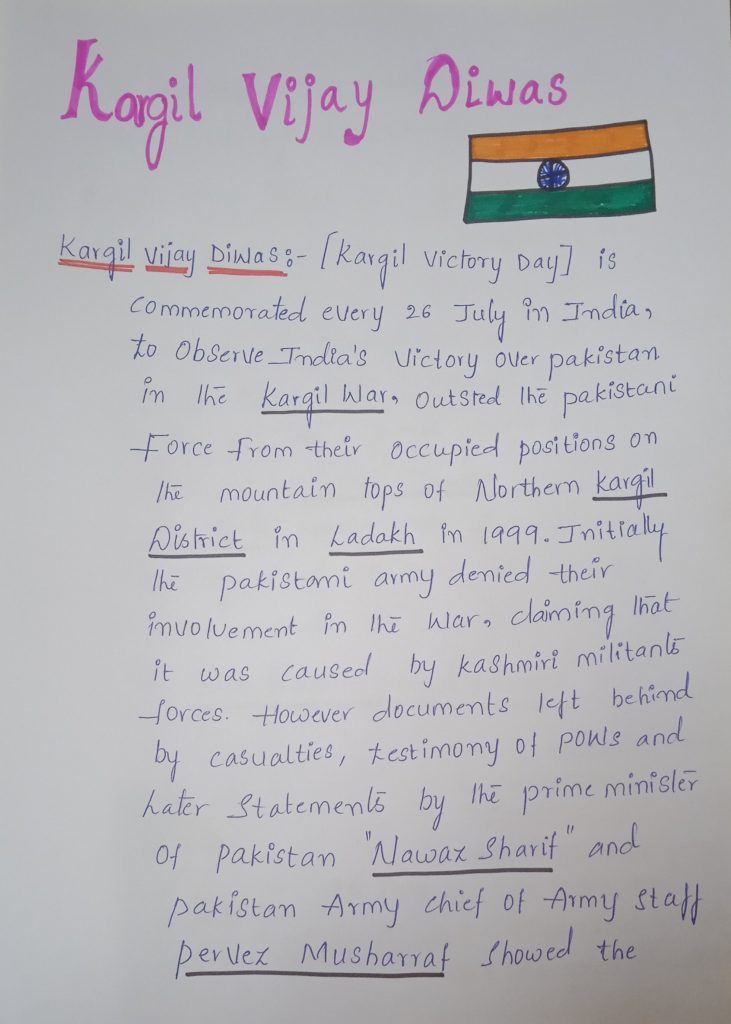 Kargil Vijay Diwas
Kargil Vijay Diwas:- [Kargil Victory Day] is
commemorated every 26 July in India,
to Observe India's Victory over pakistan
in the Kargil War, outsted the pakistani
Force from their occupied positions on
the mountain tops of Northern kargil
District in Ladakh in 1999. Initially
the pakistani army denied their
involvement in the War, claiming that
it was caused by kashmiri militants
forces. However documents left behind
by casualties, testimony of POWs and
Later Statements by the prime minister
Of pakistan "Nawaz Sharif" and
pakistan Army chief of Army staff
Pervez Musharraf showed the